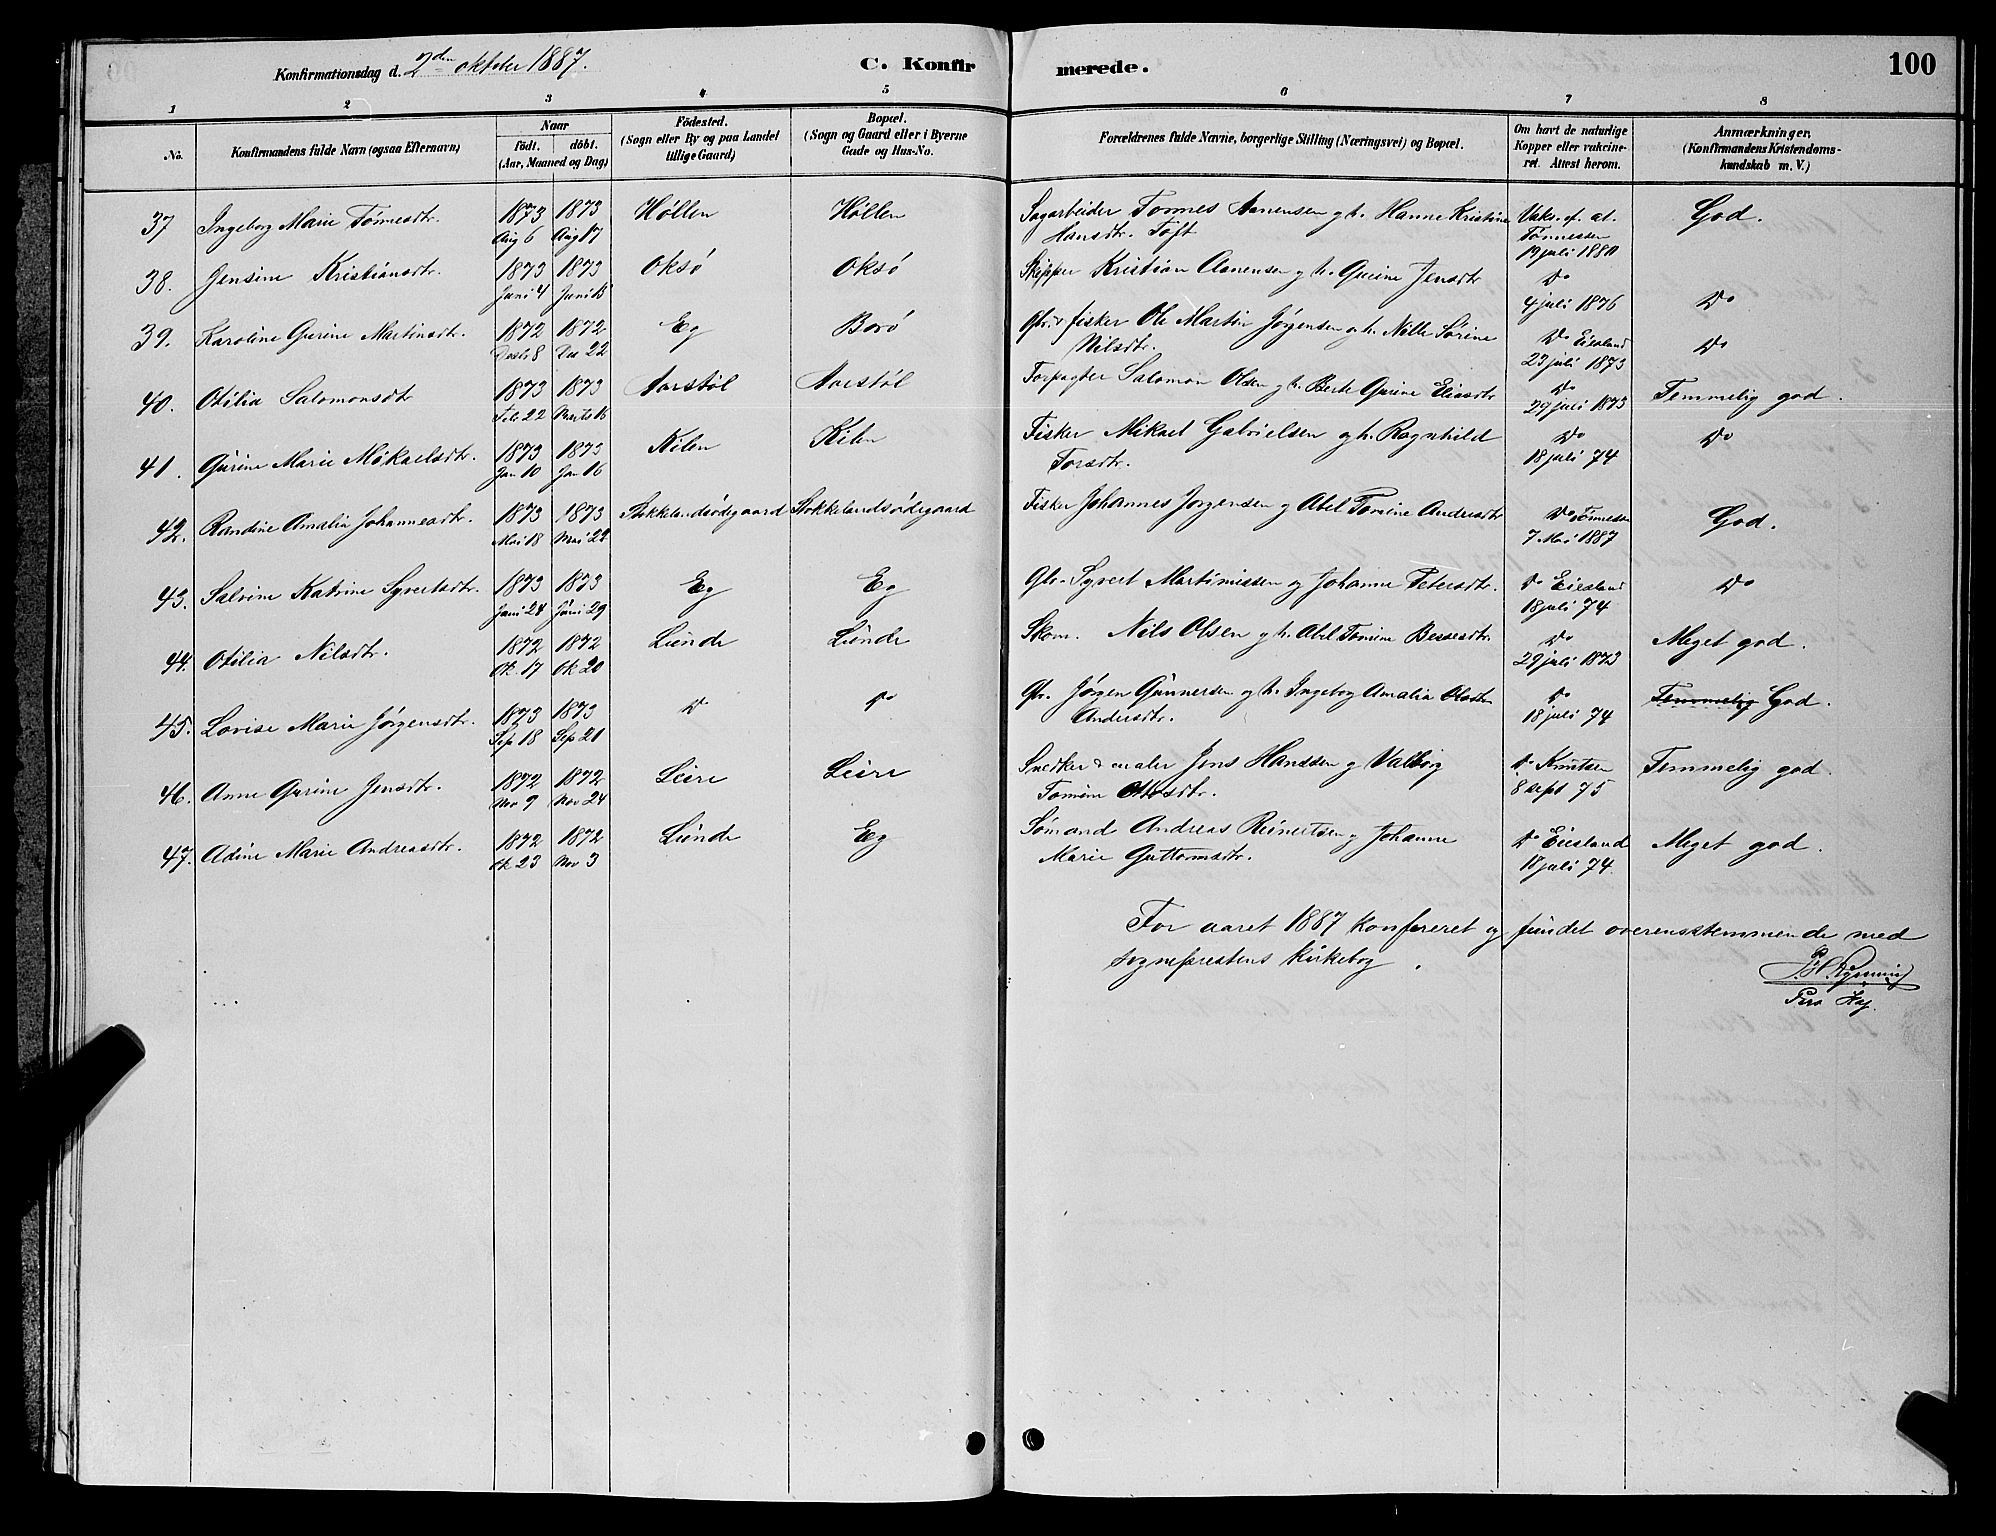 Konfirmationsdag d. 2den oktober 1887. C. Konfirmerede. 100
1 2 3 4 5 6 7 8
No. Konfirmandens fulde Navn (ogsaa Efternavn) Naar födt. döbt. (Aar, Maaned og Dag) Födested. (Sogn eller By og paa Landet tillige Gaard) Bopæl. (Sogn og Gaard eller i Byerne Gade og Hus-No. Forældrenes fulde Navne, borgerlige Stilling (Næringsvei) og Bopæl. Om havt de naturlige Kopper eller vakcineret. Attest herom. Anmærkninger, (Konfirmandens Kristendomskundskab m. V.)
37 Ingeborg Marie Tømesdtr. 1873 Aug 6 1873 Aug 17 Høllen Høllen Sagarbeider Tønnes Aanensen g h. Hanne Kristine Hansdtr. Toft Vaks. ef. at. Tønnessen 19 juli 1880 God.
38. Jensine Kristiansdtr. 1873 Juni 4 1873 Juni 15 Oksø Oksø Skipper Kristian Aanensen g h. Gurine Jensdtr Do 4 juli 1876 Do
39. Karoline Gurine Martinsdtr. 1872 Decbr 8 1872 Dec 22 Eg Borø Gbr. & fisker Ole Martin Jørgensen g h. Nille Sørine Nilsdtr. Do Eiesland 23 juli 1873 Do
40. Otilia Salomonsdtr 1873 Feb 22 1873 Marts 16 Aarstøl Aarstøl Forpagter Salomon Olsen g h. Berte Gurine Eliasdtr Do 29 juli 1873 Temmelig god.
41. Gurine Marie Mikaelsdtr. 1873 Jan 10 1873 Jan 16 Kilen Kilen Fisker Mikael Gabrielsen g h. Ragnhild Torsdtr. Do 18 juli 74 Do
42. Randine Amalia Johannesdtr. 1873 Mai 18 1873 Mai 22 Stokkelandsødegaard Stokkelandsødegaard Fisker Johannes Jørgensen g Abel Tomine Andreasdtr Do Tønnessen 7 Mai 1887 God.
43. Salvine Katrine Syvertsdtr. 1873 Juni 24 1873 Juni 29 Eg Eg Gbr. Syvert Martinissen g Johanne Petersdtr. Do Eiesland 18 juli 74 Do
44. Otilia Nilsdtr. 1872 Ok. 17 1872 Ok 20 Lunde Lunde Skom. Nils Olsen g h. Abel Tomine Bessesdtr. Do 29 juli 1873 Meget god.
45. Lovise Marie Jørgensdtr. 1873 Sep 18 1873 Sep 21 Do Do Gbr. Jørgen Gunnersen g h. Ingebog Amalia Andersdtr. Do 18 juli 74 Temmelig God.
46. Anne Gurine Jensdtr. 1872 Nov 9 1872 Nov 24 Leire Leire Snedker & maler Jens Hanssen g Valborg Tomine Ottosdtr. Do Knutsen 8 sept 75 Temmelig god.
47. Adine Marie Andreasdtr. 1872 Ok 23 1872 Nov 3 Lunde Eg Sømand Andreas Reinertsen g Johanne Marie Guttormsdtr. Do Eiesland 18 juli 74. Meget god.
For aaret 1887 konfereret og fundet overensstemmende med
sogneprestens kirkebog.
Pers. Kap.